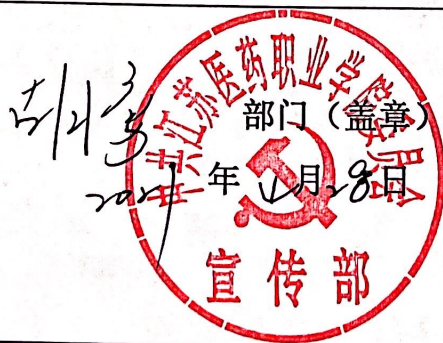 中共江苏医药职业学院委员会
部门（盖章）
年 月28日
宣传部